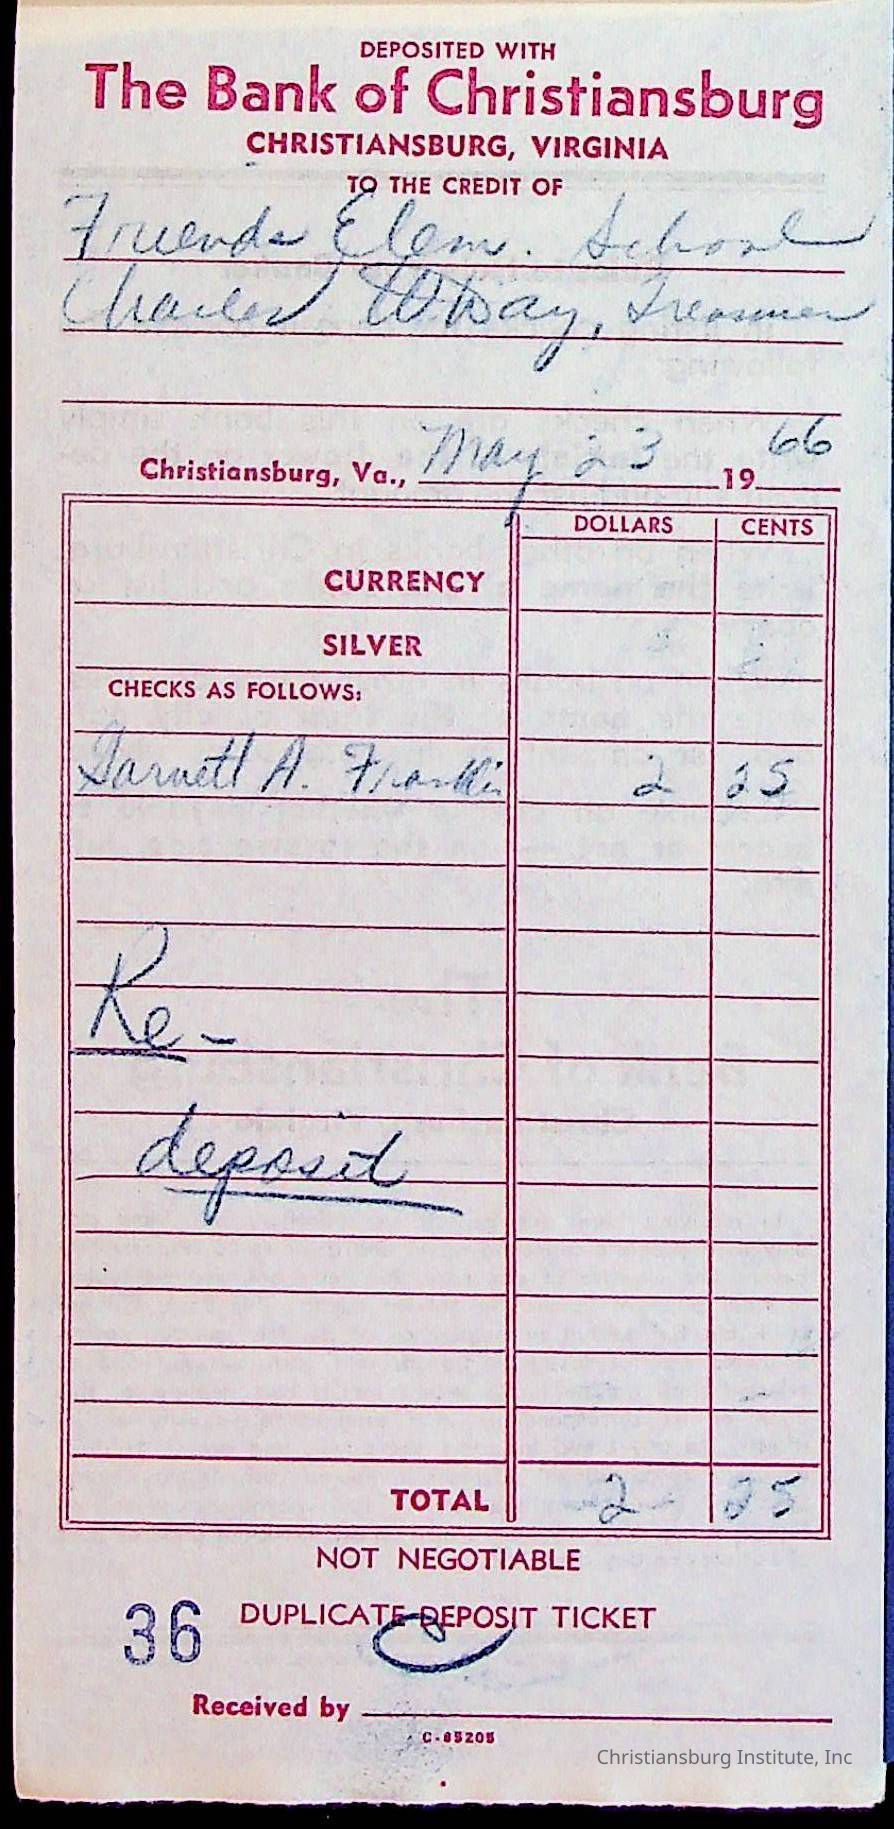 DEPOSITED WITH
The Bank of Christiansburg
CHRISTIANSBURG, VIRGINIA
TO THE CREDIT OF
Friends Elem. School
Charles W Day, Treasurer
Christiansburg, Va., May 23 1966
DOLLARS CENTS
CURRENCY
SILVER
CHECKS AS FOLLOWS:
Garnett A. Franklin 2 25
Re-
deposit
TOTAL 2 25
NOT NEGOTIABLE
36 DUPLICATE DEPOSIT TICKET
Received by
C-85205
Christiansburg Institute, Inc